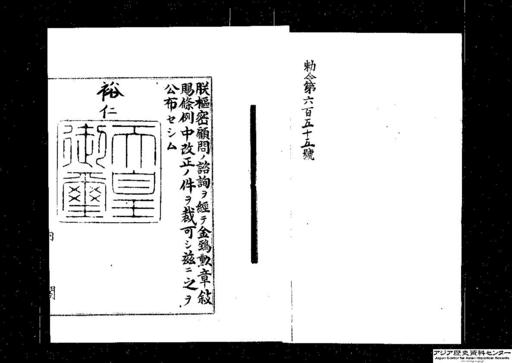 勅令第六百五十五號
朕樞密顧問ノ諮詢ヲ經テ金鵄勲章敍
賜條例中改正ノ件ヲ裁可シ茲ニ之ヲ
公布セシム
裕仁
天皇
御璽
内
閣
アジア歴史資料センター